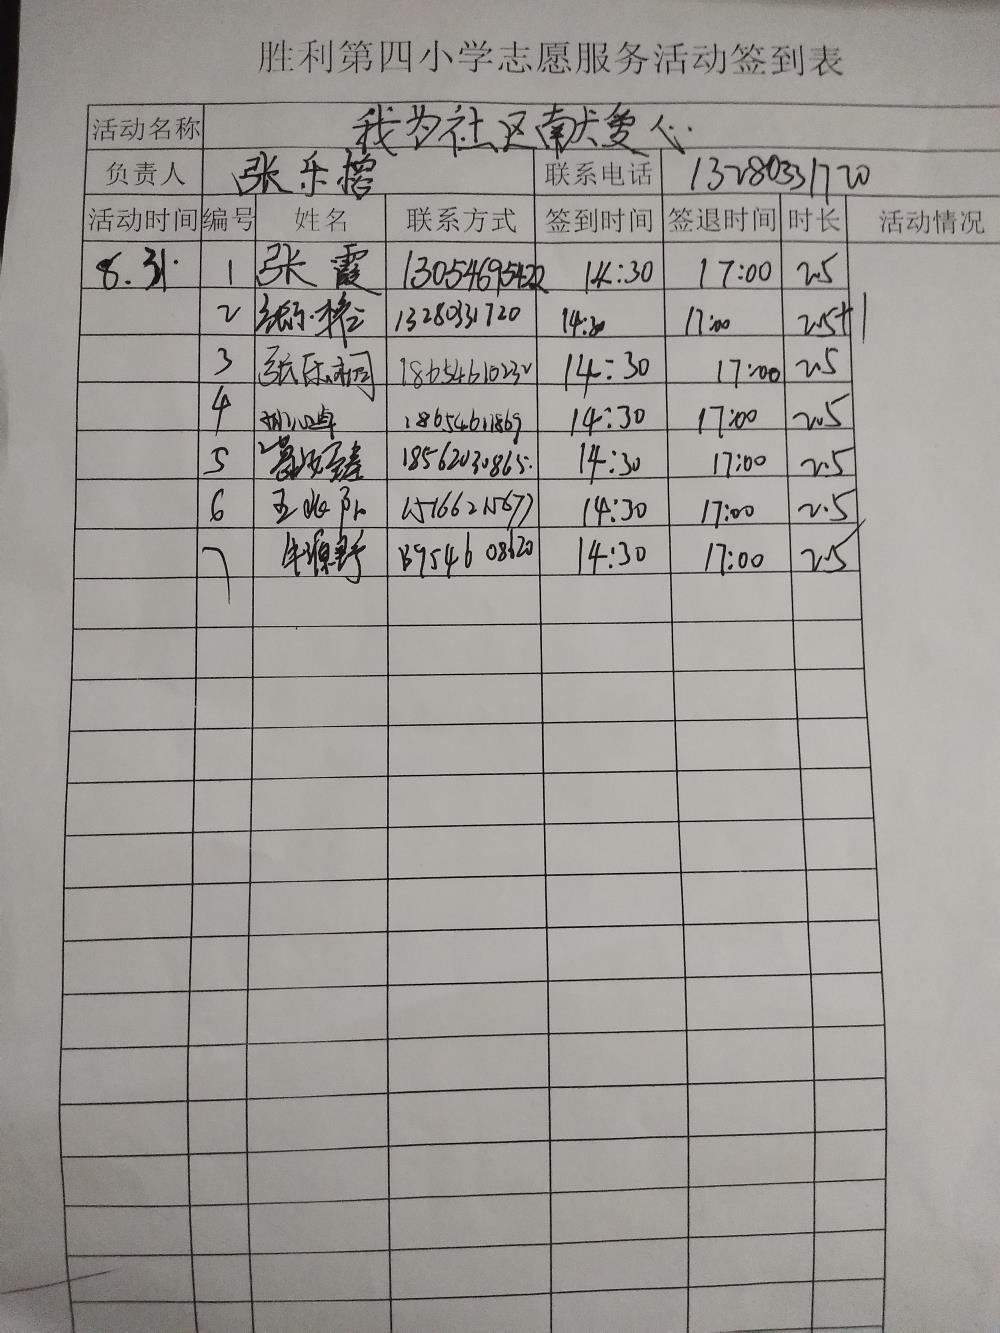 胜利第四小学志愿服务活动签到表
活动名称 我为社区献爱心
负责人 张乐 联系电话 13280331720
活动时间 编号 姓名 联系方式 签到时间 签退时间 时长 活动情况
8.31. 1 张霞 13054695422 14:30 17:00 2.5
2 13280331720 14:30 17:00 2.5+1
3 张乐桐 18654610232 14:30 17:00 2.5
4 18654611869 14:30 17:00 2.5
5 18562030865. 14:30 17:00 2.5
6 王 14:30 17:00 2.5
7 牛 14:30 17:00 2.5